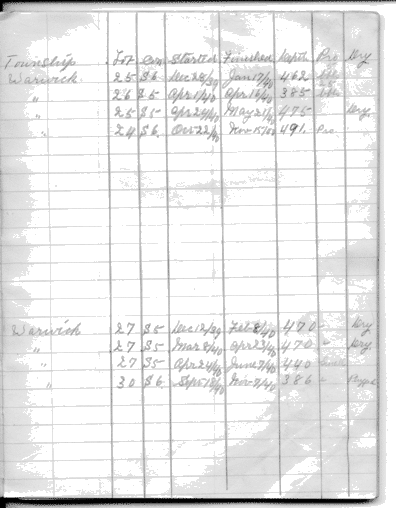 Township Lot Con Started Finished Depth Pro Dry
Warwick 25 S6 Dec 28/39 Jan 17/40 462
" 26 S5 Apr 1/40 Apr 16/40 385
" 25 S5 Apr 24/40 May 21/40 475 Dry.
" 24 S6. Oct 22/40 Nov 15/40 491. Pro
Warwick 27 S5 Dec 12/39 Feb 8/40 470 " Dry
" 27 S5 Mar 8/40 Apr 23/40 470 " Dry.
" 27 S5 Apr 24/40 June 7/40 440
" 30 S6. Sept 18/40 Nov 9/40 386 "